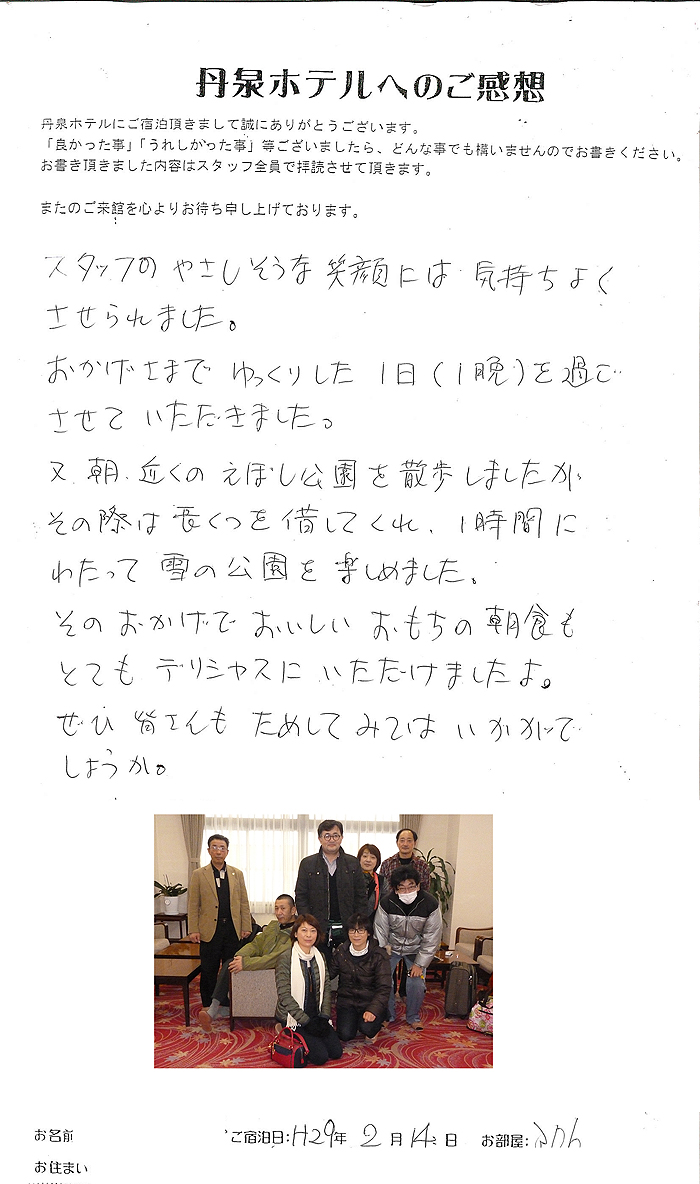 丹泉ホテルへのご感想
丹泉ホテルにご宿泊頂きまして誠にありがとうございます。
「良かった事」「うれしかった事」等ございましたら、どんな事でも構いませんのでお書きください。
お書き頂きました内容はスタッフ全員で拝読させて頂きます。
またのご来館を心よりお待ち申し上げております。
スタッフの やさしそうな 笑顔には 気持ちよく
させられました。
おかげさまで ゆっくりした 1日(1晩)を過ご
させて いただきました。
又 朝、近くの えぼし公園を 散歩しましたが
その際は 長くつを 借してくれ、1時間に
わたって 雪の公園を 楽しめました。
その おかげで おいしい おもちの 朝食も
とても デリシャスに いただけましたよ。
ぜひ 皆さんも ためして みては いかがで
しょうか。
お名前 ご宿泊日:H29年 2月14日 お部屋:
お住まい